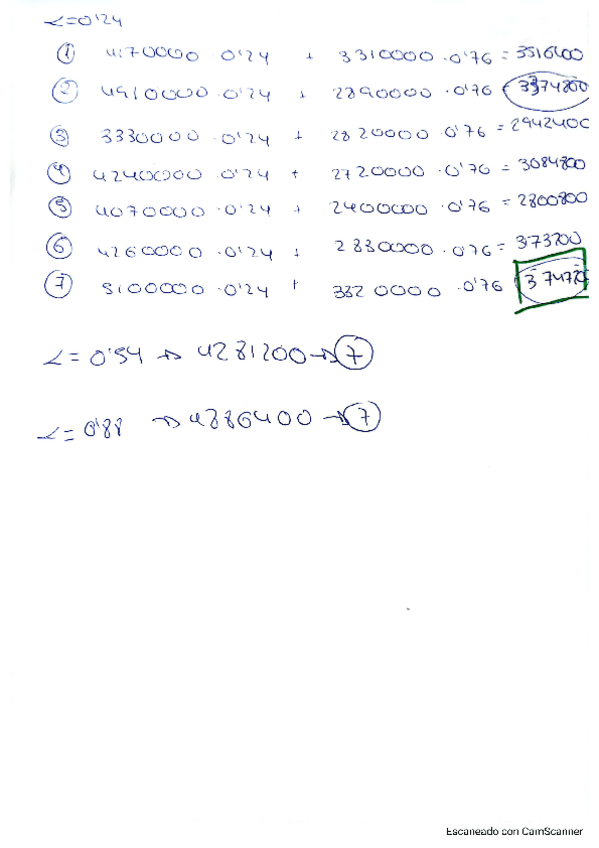 α=0'24
① 4170000 · 0'24 + 3310000 · 0'76 = 3516400
② 4910000 · 0'24 + 2890000 · 0'76 = 3374800
③ 3330000 · 0'24 + 2820000 · 0'76 = 2942400
④ 4240000 · 0'24 + 2720000 · 0'76 = 3084800
⑤ 4070000 · 0'24 + 2400000 · 0'76 = 2800800
⑥ 4260000 · 0'24 + 2830000 · 0'76 = 3173200
⑦ 5100000 · 0'24 + 3320000 · 0'76
α = 0'54 → 4281200 → ⑦
α = 0'88 → 4886400 → ⑦
Escaneado con CamScanner